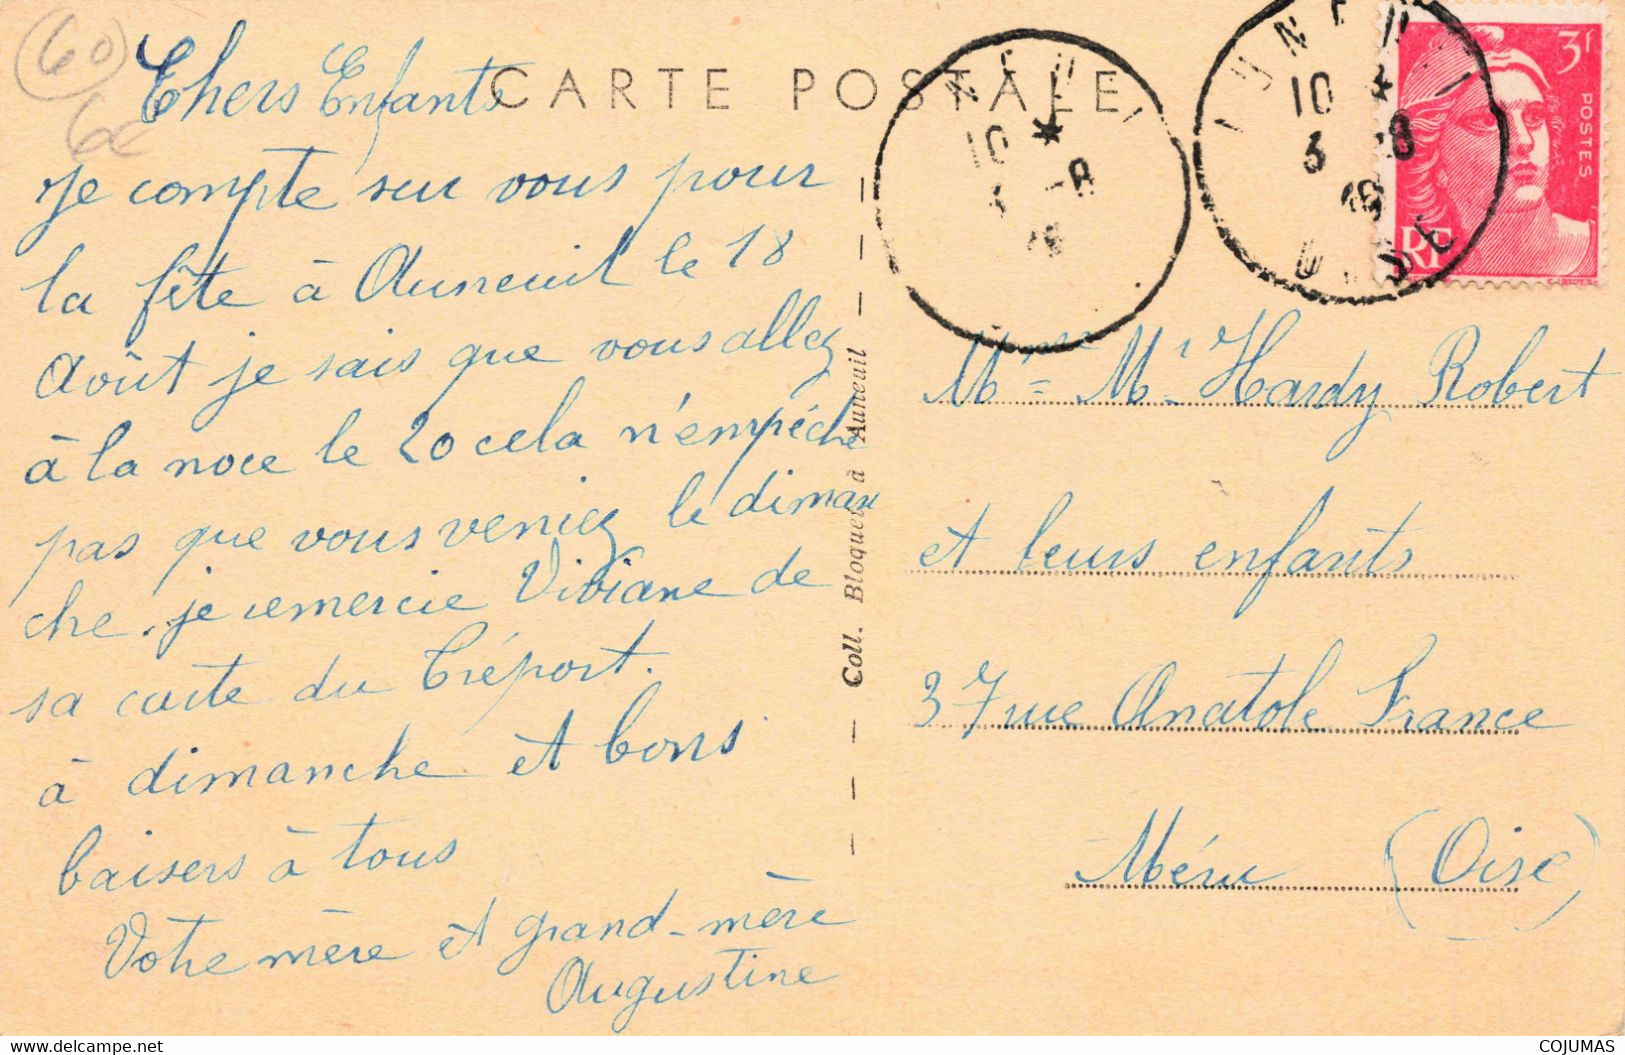 60
6€
CARTE POSTALE
Chers Enfants
Je compte sur vous pour
la fête à Auneuil le 18
Août je sais que vous allez
à la noce le 20 cela n'empêche
pas que vous veniez le diman
che. je remercie Viviane de
sa carte du Tréport.
à dimanche et bons
baisers à tous
Votre mère et grand-mère
Augustine
Coll. Bloquet à Auneuil
10 *
10
3 -8
OISE
3f
POSTES
RF
Mme Mr Hardy Robert
et leurs enfants
37 rue Anatole France
Méru (Oise)
www.delcampe.net
COJUMAS